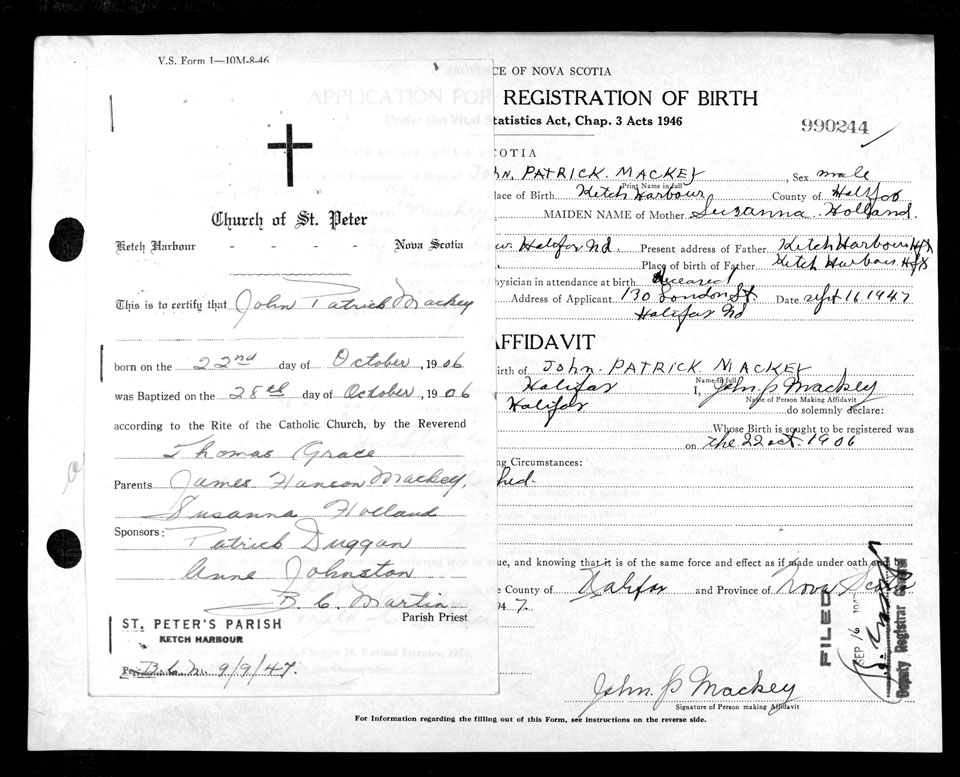 V.S. Form 1—10M-8-46
PROVINCE OF NOVA SCOTIA
APPLICATION FOR REGISTRATION OF BIRTH
Under the Vital Statistics Act, Chap. 3 Acts 1946
990244
OTIA
John. PATRICK. MACKEY, Sex male
Print Name in full
lace of Birth Ketch Harbour County of Halifax
MAIDEN NAME of Mother Susanna Holland.
Halifax Present address of Father Ketch Harbour Hfx
Place of birth of Father Ketch Harbour Hfx
hysician in attendance at birth deceased
Address of Applicant 130 London St. Date Sept 16 1947
Halifax
AFFIDAVIT
irth of John. PATRICK. MACKEY
Name in full
Halifax I, John P Mackey
Name of Person Making Affidavit
Halifax do solemnly declare:
Whose Birth is sought to be registered was
on the 22 oct. 1906
ng Circumstances:
hed.
ue, and knowing that it is of the same force and effect as if made under oath and by
e County of Halifax and Province of Nova Scotia
47.
FILED
SEP 16
Deputy Registrar
John. P Mackey
Signature of Person making Affidavit
For Information regarding the filling out of this Form, see instructions on the reverse side.
Church of St. Peter
Ketch Harbour - - - - - Nova Scotia
This is to certify that John Patrick Mackey
born on the 22nd day of October, 1906
was Baptized on the 28th day of October, 1906
according to the Rite of the Catholic Church, by the Reverend
Thomas Grace
Parents James Hanson Mackey.
Susanna Holland
Sponsors: Patrick Duggan
Anne Johnston
B. C. Martin
Parish Priest
ST. PETER'S PARISH
KETCH HARBOUR
Per B.C.M. 9/9/47.